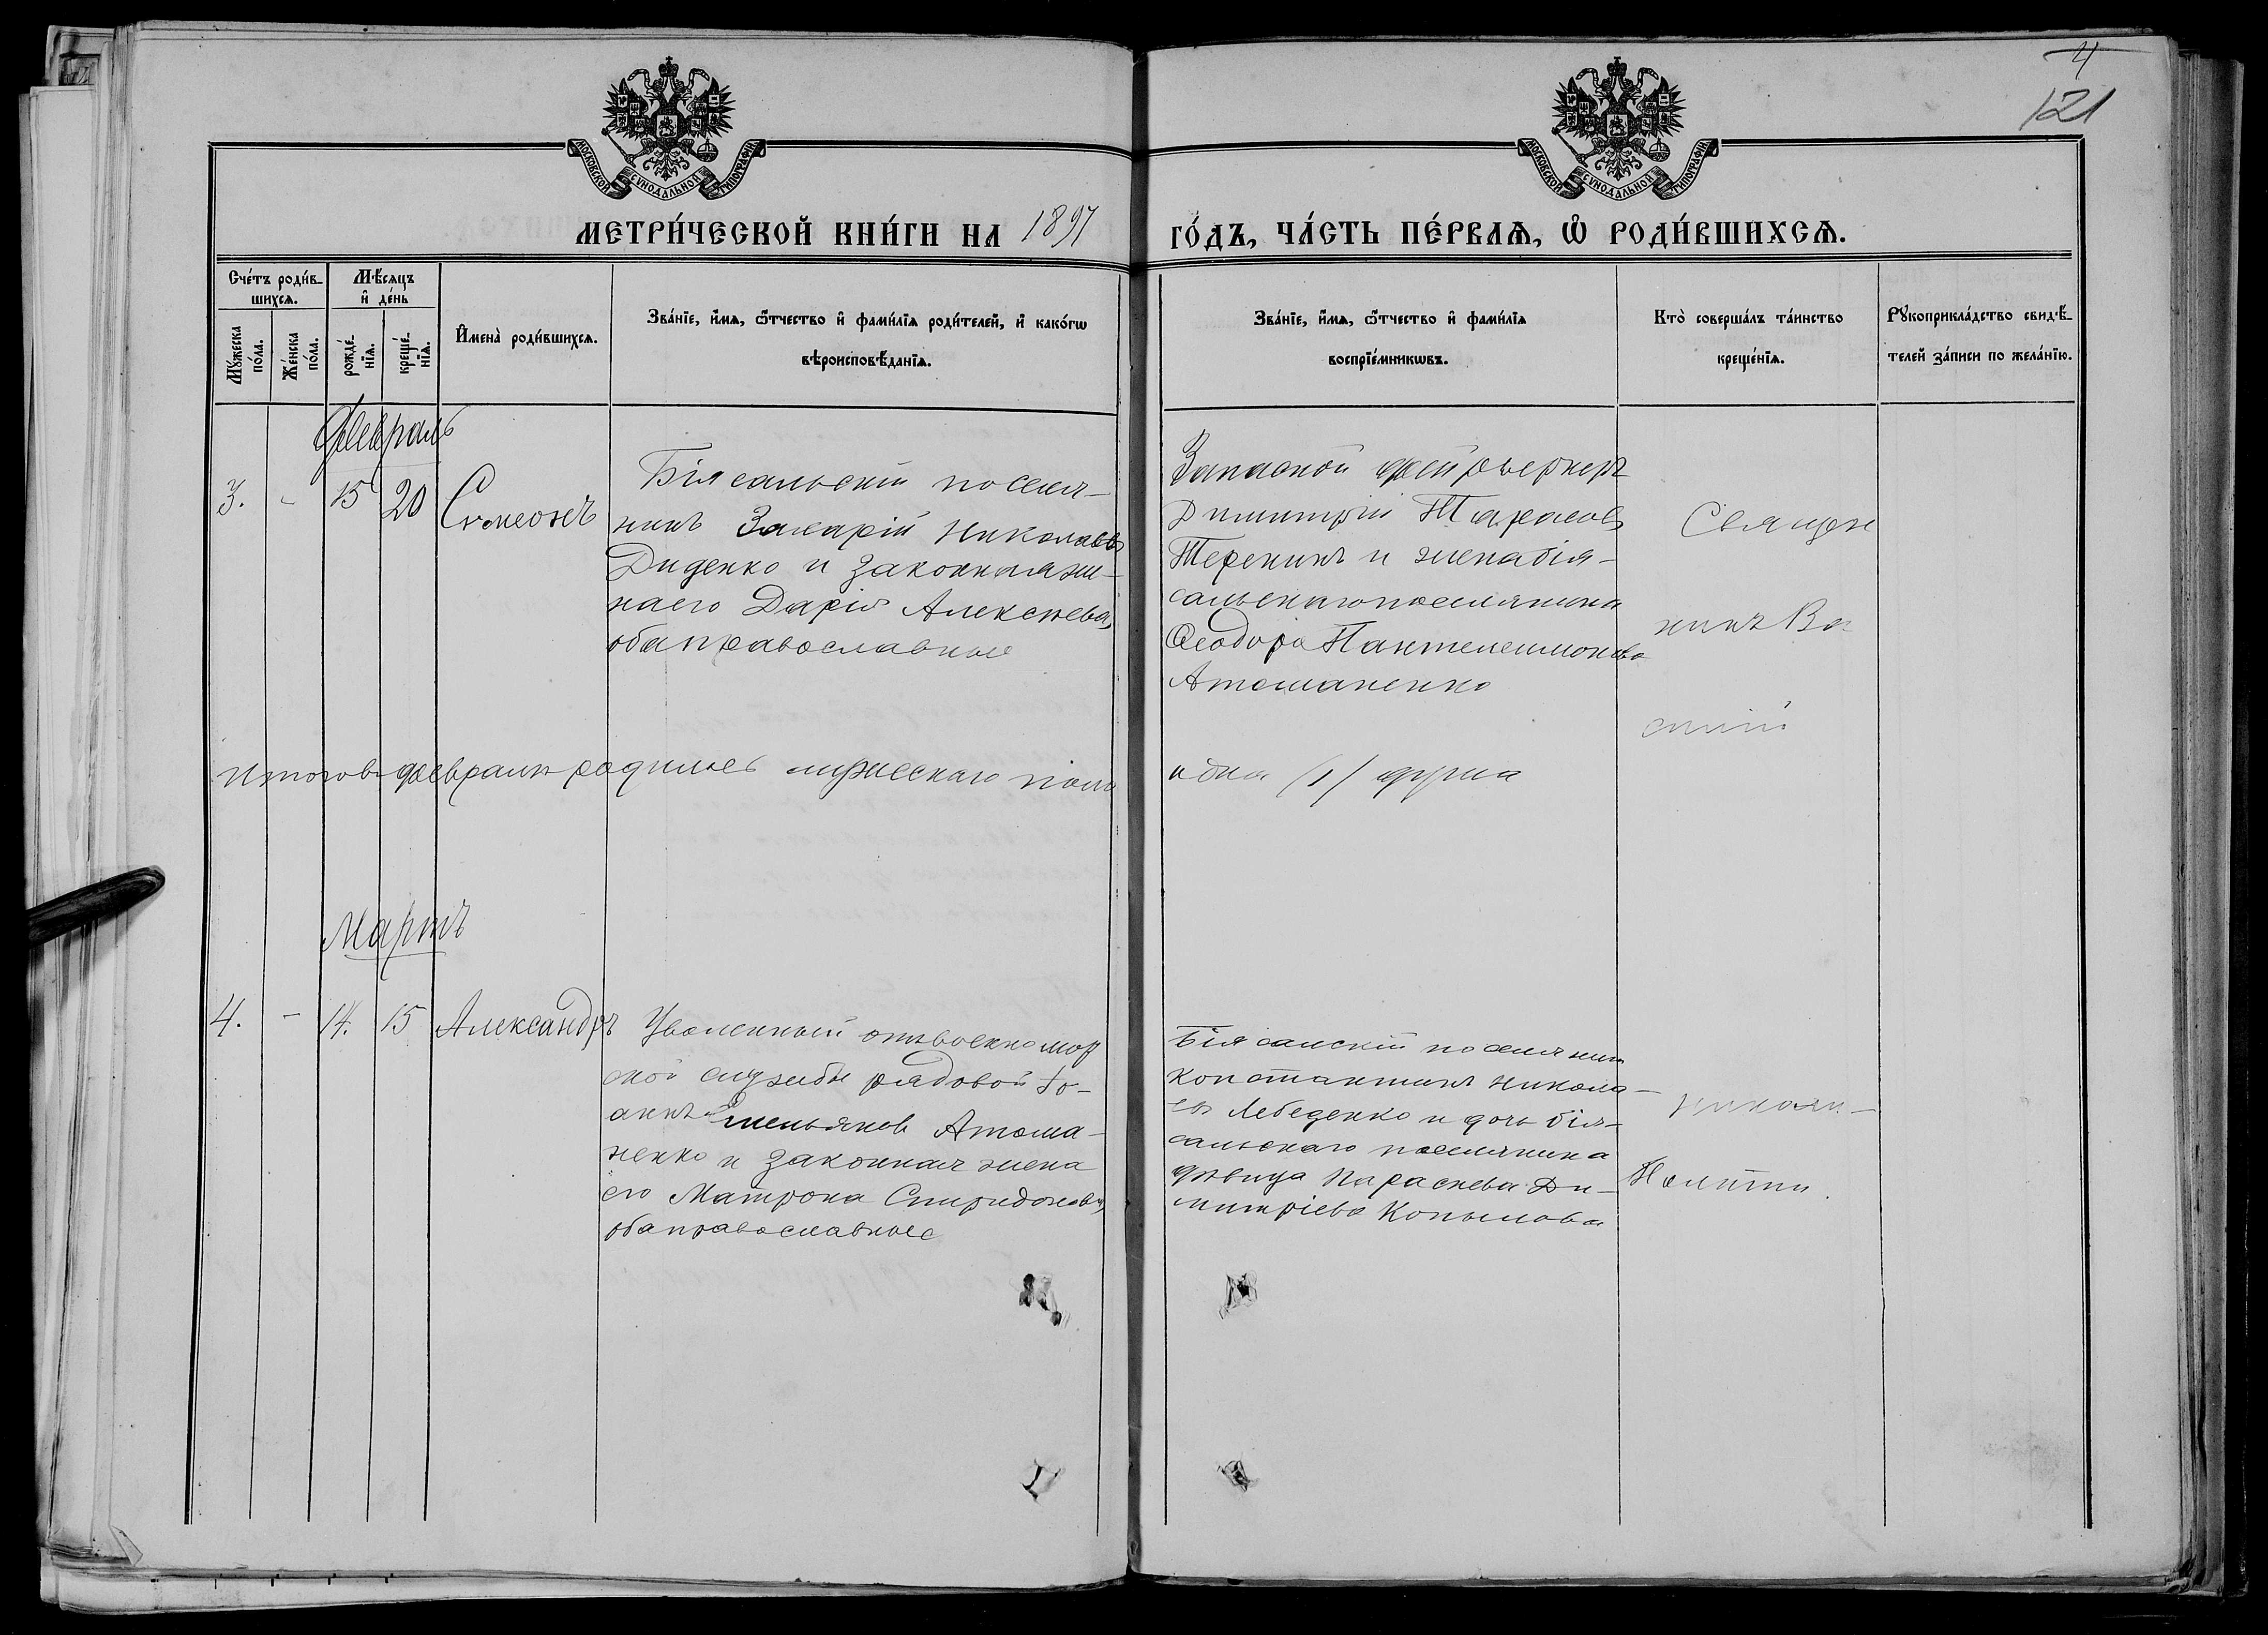 4
121
МОСКОВСКОЙ СѴНОДАЛЬНОЙ ТИПОГРАФІИ
МОСКОВСКОЙ СѴНОДАЛЬНОЙ ТИПОГРАФІИ
МЕТРИ́ЧЕСКОЙ КНИ́ГИ НА 1897 ГО́ДЪ, ЧА́СТЬ ПЕ́РВАѦ, Ѡ҆ РОДИ́ВШИХСѦ.
Сче́тъ роди́в-
шихсѧ.
Мѣ́сѧцъ
и҆ де́нь
Мꙋ́жеска
по́ла.
Же́нска
по́ла.
рожде́-
нїѧ.
креще́-
нїѧ.
И҆мена̀ роди́вшихсѧ.
Зва́нїе, и҆́мѧ, ѻ҆́тчество и҆ фами́лїѧ роди́телей, и҆ како́гѡ
вѣроисповѣ́данїѧ.
Зва́нїе, и҆́мѧ, ѻ҆́тчество и҆ фами́лїѧ
воспрїе́мникѡвъ.
Кто̀ соверша́лъ та́инство
креще́нїѧ.
Рꙋкоприкла́дство свидѣ́-
телей за́писи по жела́нїю.
Февраль
3. - 15 20 Симеонъ
Біясальскій поселя-
нинъ Захарій Николаевъ
Диденко и законная же-
на его Дарія Алексѣева,
оба православные
Запасной фейрверкеръ
Димитрій Тарасовъ
Терекинъ и жена бія-
сальскаго поселянина
Ѳеодора Пантелеимонова
Атаманенко
Священ
никъ Ва
силій
Итого въ февралѣ родилось мужескаго пола одна /1/ душа
Мартъ
4. - 14. 15 Александръ
Уволенный отъ военно мор
ской службы рядовой Іо-
аннъ Емельяновъ Атама-
ненко и законная жена
его Матрона Спиридонова,
оба православные
Біясалскій поселянинъ
Константинъ Никола-
евъ Лебеденко и дочь бія-
сальскаго поселянина
дѣвица Параскева Ди-
митріева Копылова